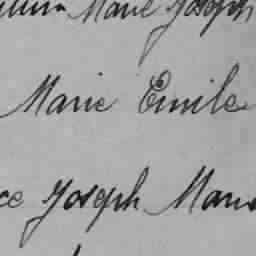 Marie Joseph
Marie Emile
Joseph Mari